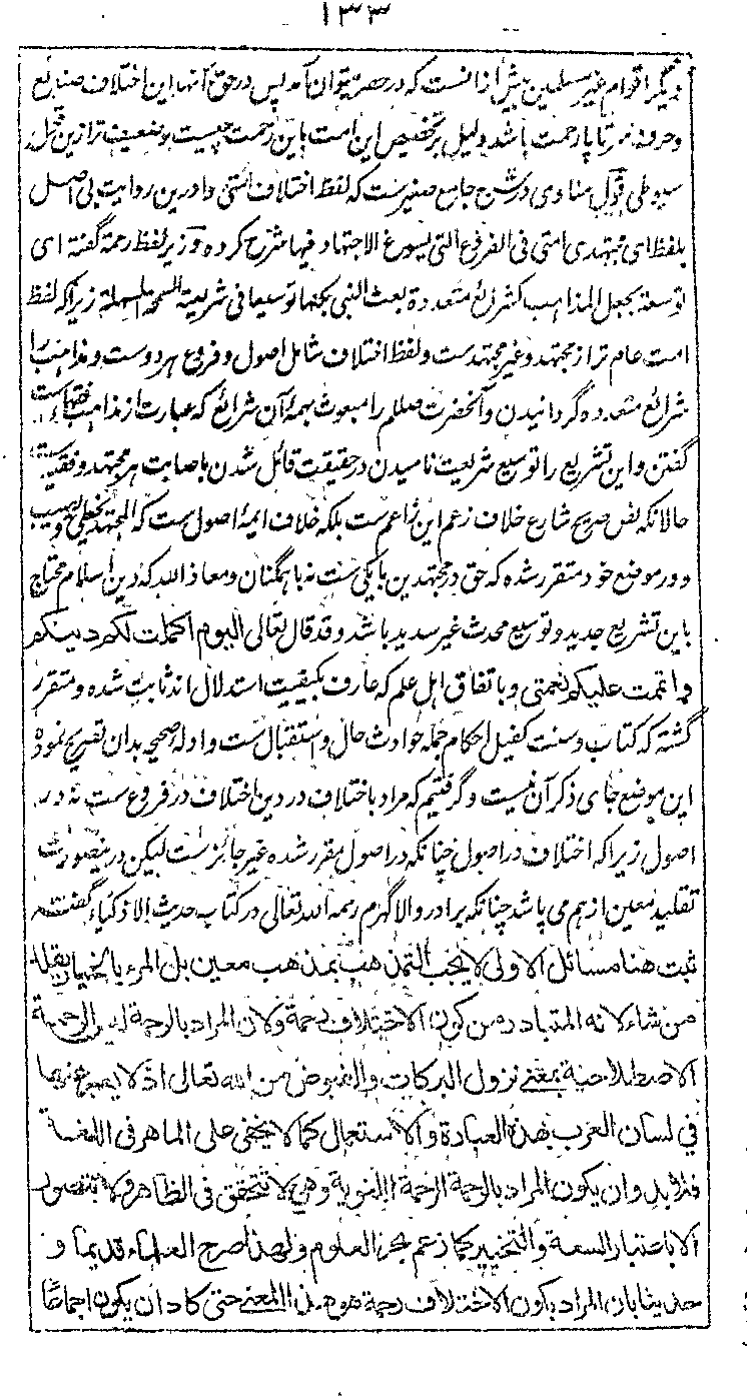 ۱۳۳
دیگر اقوام غیر مسلمین بیش ازانست که در حصر توان آمد پس در حق آنها این اختلاف صنایع
و حرفه سرتا پا رحمت باشد ولیل بر تخصیص این امت باین رحمت چیست و ضعیف تر ازین قول
سیوطی قول مناوی در شرح جامع صغیرست که لفظ اختلاف امتی را درین روایت بی اصل
بلفظ ای مجتهدی امتی فی الفروع التی یسوغ الاجتهاد فیها شرح کرده و زیر لفظ رحمة گفته ای
توسعة بجعل المذاهب کشرائع متعددة بعث النبی بکلها توسیعا فی شریعته السمحة السهلة زیراکه لفظ
امت عام تر از مجتهد و غیر مجتهدست و لفظ اختلاف شامل اصول و فروع هر دوست و مذاهب را
شرائع متعدده گردانیدن و آنحضرت صللم را مبعوث بهمه آن شرائع که عبارت از مذاهب فقهاءست
گفتن و این تشریع را توسیع شریعت نامیدن در حقیقت قائل شدن باصابت هر مجتهد و فقیه ست
حالانکه نص صریح شارع خلاف زعم این زاعم ست بلکه خلاف ایمهٔ اصول ست که المجتهد یخطی و یصیب
و در موضع خود متقرر شده که حق در مجتهدین با یکی ست نه با همگنان و معاذ الله که دین اسلام محتاج
باین تشریع جدید و توسیع محدث غیر سدید باشد و قد قال تعالی الیوم اکملت لکم دینکم
و اتممت علیکم نعمتی و باتفاق اهل علم که عارف بکیفیت استدلال اند ثابت شده و متقرر
گشته که کتاب و سنت کفیل احکام جمله حوادث حال و استقبال ست و ادلهٔ صحیحه بدان تصریح نموده
این موضع جای ذکر آن نیست و گرفتیم که مراد باختلاف در دین اختلاف در فروع ست نه در
اصول زیراکه اختلاف در اصول چنانکه در اصول مقرر شده غیر جائزست لیکن درینصورت
تقلید معین از هم می پاشد چنانکه برادر والا گهرم رحمه الله تعالی در کتاب حدیث الاذکیاء گفته
ثبت هنا مسائل الاولی لا یجب التمذهب بمذهب معین بل المرء بالخیار یقلد
من شاء لانه المتبادر من کون الاختلاف رحمة ولان المراد بالرحمة لیس الرحمة
الاصطلاحیة بمعنی نزول البرکات والفیوض من الله تعالی اذ لا یعبر عنها
فی لسان العرب بهذه العبارة والاستعمال کما لا یخفی علی الماهر فی اللغة
فلا بد وان یکون المراد بالرحمة الرحمة اللغویة وهی لا تتحقق فی الظاهر ولا تتصور
الا باعتبار السعة والتخییر کما زعم بحر العلوم ولهذا صرح العلماء قدیما و
حدیثا بان المراد بکون الاختلاف رحمة هو هذا المعنی حتی کاد ان یکون اجماعا